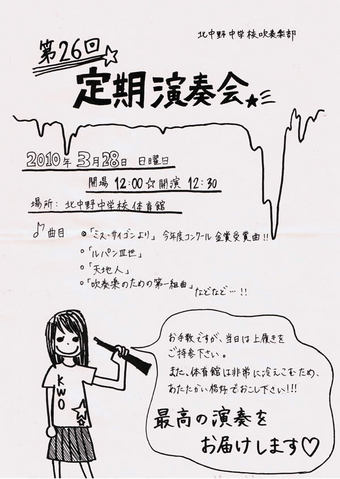 北中野中学校吹奏楽部
第26回
定期演奏会
2010年 3月28日 日曜日
開場 12:00☆開演 12:30
場所: 北中野中学校 体育館
♪曲目 ◎「ミス・サイゴンより」 今年度コンクール金賞受賞曲!!
◎「ルパン三世」
◎「天地人」
◎「吹奏楽のための第一組曲」
などなど…!!
お手数ですが、当日は上履きを
ご持参下さい。
また、体育館は非常に冷えこむため、
あたたかい格好でおこし下さい!!!
最高の演奏を
お届けします♡
KWO